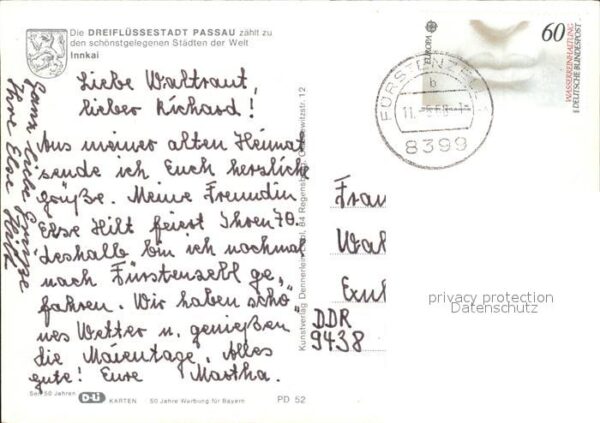 Die DREIFLÜSSESTADT PASSAU zählt zu
den schönstgelegenen Städten der Welt
Innkai
Liebe Waltraut,
lieber Richard!
Aus meiner alten Heimat
sende ich Euch herzliche
grüße. Meine Freundin
Else Hilt feiert Ihren 70.
Deshalb bin ich nochmal
nach Fürstenzell ge„
fahren. Wir haben schö„
nes Wetter u. genießen
die Maientage. Alles
gute! Eure Martha.
Ganz liebe Grüsse
Ihre Else Hilt
Seit 50 Jahren D-Li KARTEN 50 Jahre Werbung für Bayern PD 52
Kunstverlag 84 Regensburg 12
EUROPA
60
WASSERREINHALTUNG
DEUTSCHE BUNDESPOST
FÜRSTENZELL
b
11.
8399
Frau
Wal
DDR
9438
privacy protection
Datenschutz